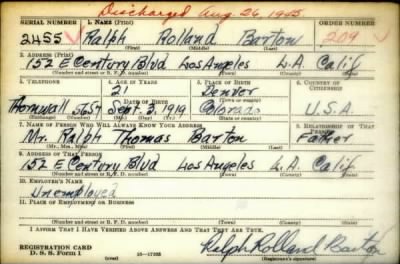 Discharged Aug. 26, 1945.
SERIAL NUMBER 1. NAME (Print) ORDER NUMBER
2455 Ralph Rolland Barton 209
(First) (Middle) (Last)
2. ADDRESS (Print)
152 E Century Blvd Los Angeles L.A. Calif
(Number and street or R. F. D. number) (Town) (County) (State)
3. TELEPHONE 4. AGE IN YEARS 5. PLACE OF BIRTH 6. COUNTRY OF CITIZENSHIP
21 Denver
DATE OF BIRTH (Town or county)
Thornwall Sept. 3, 1919 Colorado U.S.A.
(Exchange) (Number) (Mo.) (Day) (Yr.) (State or country)
7. NAME OF PERSON WHO WILL ALWAYS KNOW YOUR ADDRESS 8. RELATIONSHIP OF THAT PERSON
Mr. Ralph Thomas Barton Father
(Mr., Mrs., Miss) (First) (Middle) (Last)
9. ADDRESS OF THAT PERSON
152 E Century Blvd Los Angeles L.A. Calif
(Number and street or R. F. D. number) (Town) (County) (State)
10. EMPLOYER'S NAME
Unemployed
11. PLACE OF EMPLOYMENT OR BUSINESS
(Number and street or R. F. D. number) (Town) (County) (State)
I AFFIRM THAT I HAVE VERIFIED ABOVE ANSWERS AND THAT THEY ARE TRUE.
REGISTRATION CARD
D. S. S. Form 1 16-17105 Ralph Rolland Barton
(Registrant's signature)